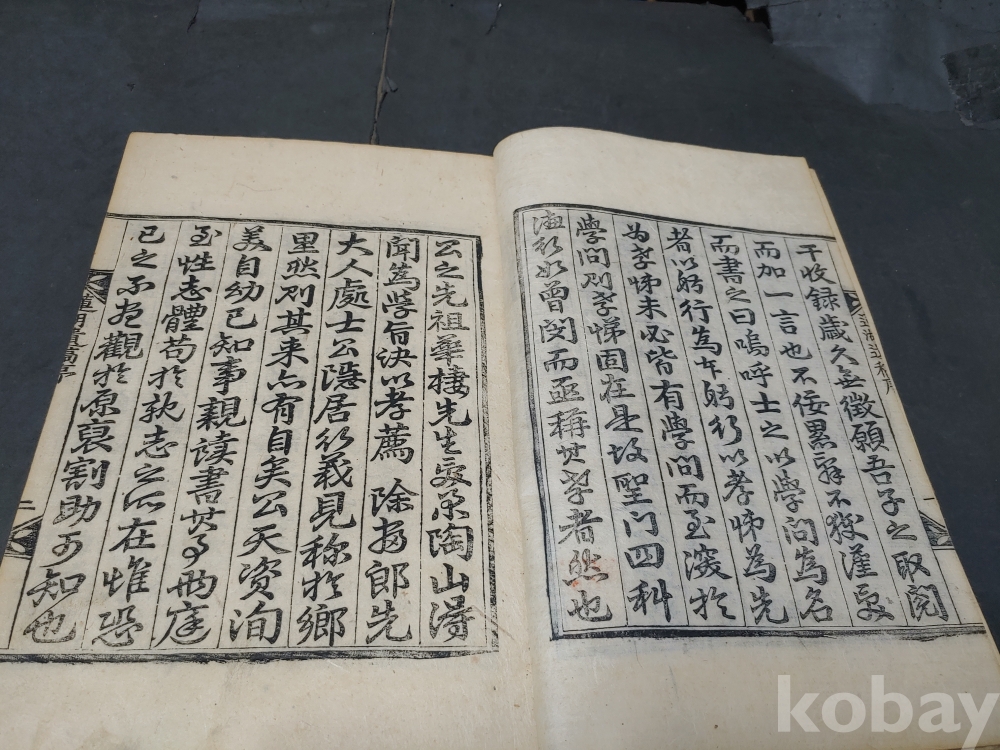 干收錄歲久無徵願吾子之取閱
而加一言也不佞累辭不獲謹受
而書之曰嗚呼士之以學問為名
者以躬行為本躬行以孝悌為先
為孝悌未必皆有學問而至深於
學問則孝悌固在是故聖门四科
德行如曾閔而亟稱其孝者然也
公之先祖華棲先生受業陶山得
聞為學旨訣以孝薦 除 郎先
大人處士公隱居行義見称於鄉
里然則其来亦有自矣公天資洵
美自幼已知事親读書其事両庭
至性志體苟於 志之所在惟恐
已之不 觀於 哀割助可知也
二
kobay